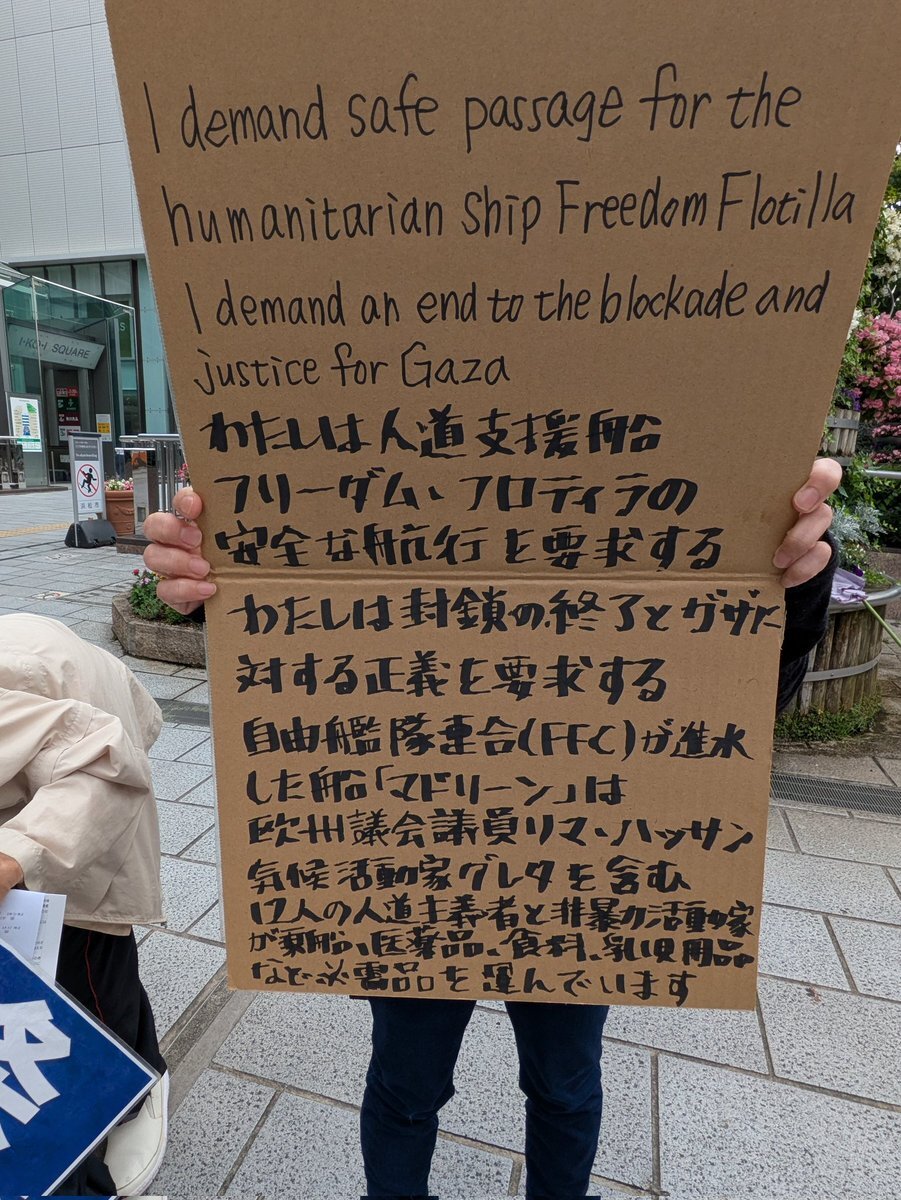 I demand safe passage for the
humanitarian ship Freedom Flotilla
I demand an end to the blockade and
justice for Gaza
わたしは人道支援船
フリーダム、フロティラの
安全な航行を要求する
わたしは封鎖の終了とガザに
対する正義を要求する
自由艦隊連合(FFC)が進水
した船「マドリーン」は
欧州議会議員リマ・ハッサン
気候活動家グレタを含む
12人の人道主義者と非暴力活動家
が乗船、医薬品、食料、乳児用品
など必需品を運んでいます
I-KO-I SQUARE
浜松市